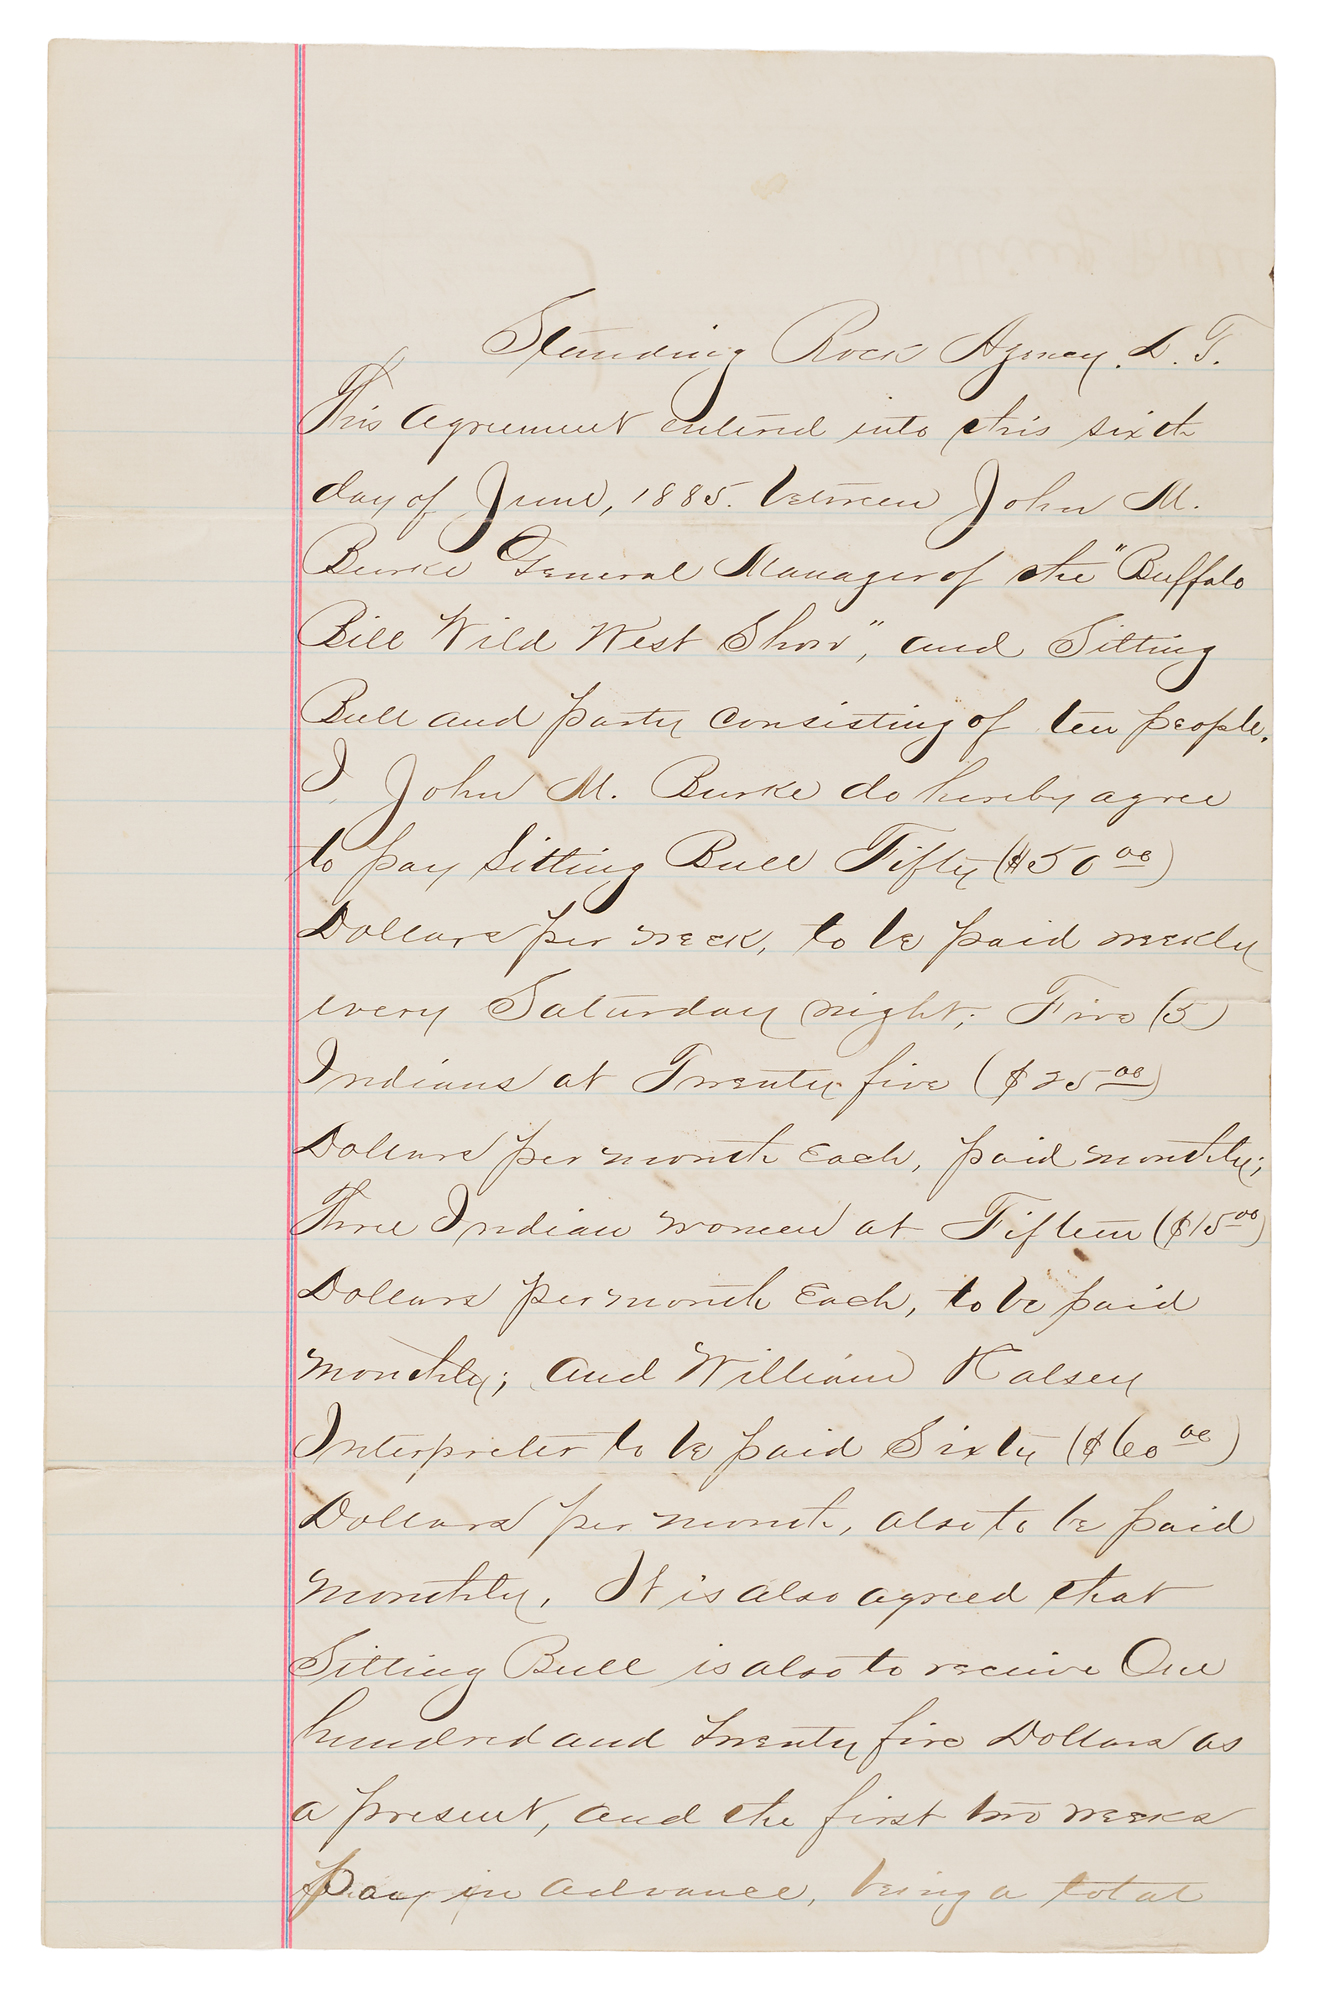 Standing Rock Agency. D. T.
This agreement entered into this sixth
day of June, 1885. between John M.
Burke General Manager of the "Buffalo
Bill Wild West Show", and Sitting
Bull and party consisting of ten people.
I, John M. Burke do hereby agree
to pay Sitting Bull Fifty ($50 00)
Dollars per week, to be paid weekly
every Saturday night; Five (5)
Indians at Twenty-five ($25 00)
Dollars per month each, paid monthly;
Three Indian women at Fifteen ($15 00)
Dollars per month each, to be paid
monthly; and William Halsey
Interpreter to be paid Sixty ($60 00)
Dollars per month, also to be paid
monthly. It is also agreed that
Sitting Bull is also to receive One
hundred and twenty five Dollars as
a present, and the first two weeks
pay in advance, being a total